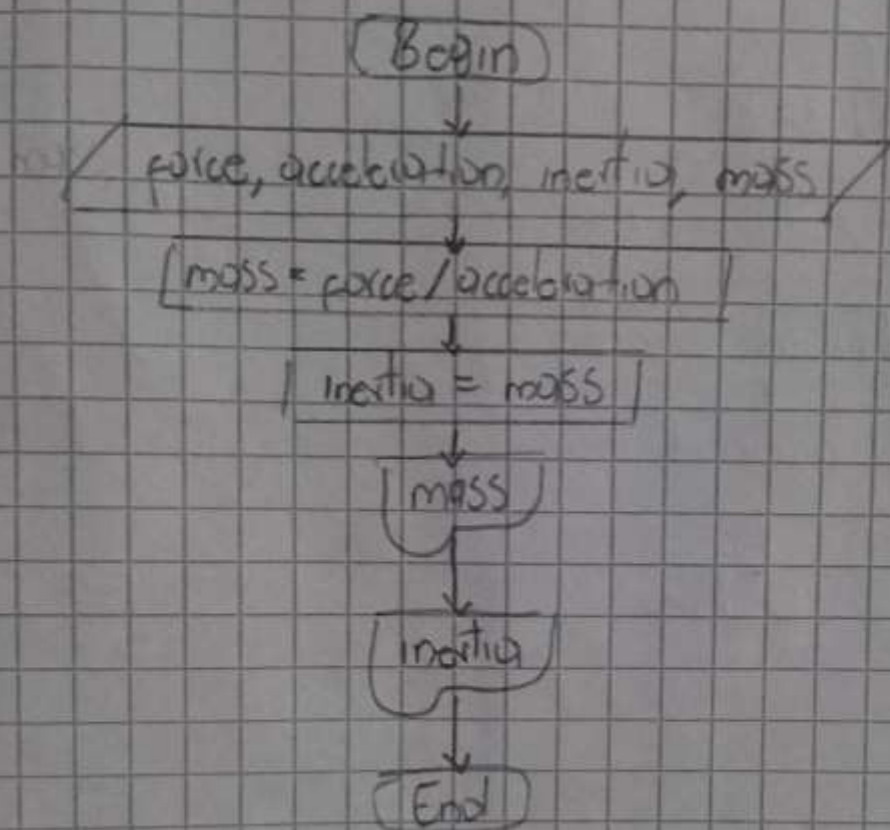 Begin
force, acceleration, inertia, mass
mass = force / acceleration
inertia = mass
mass
inertia
End